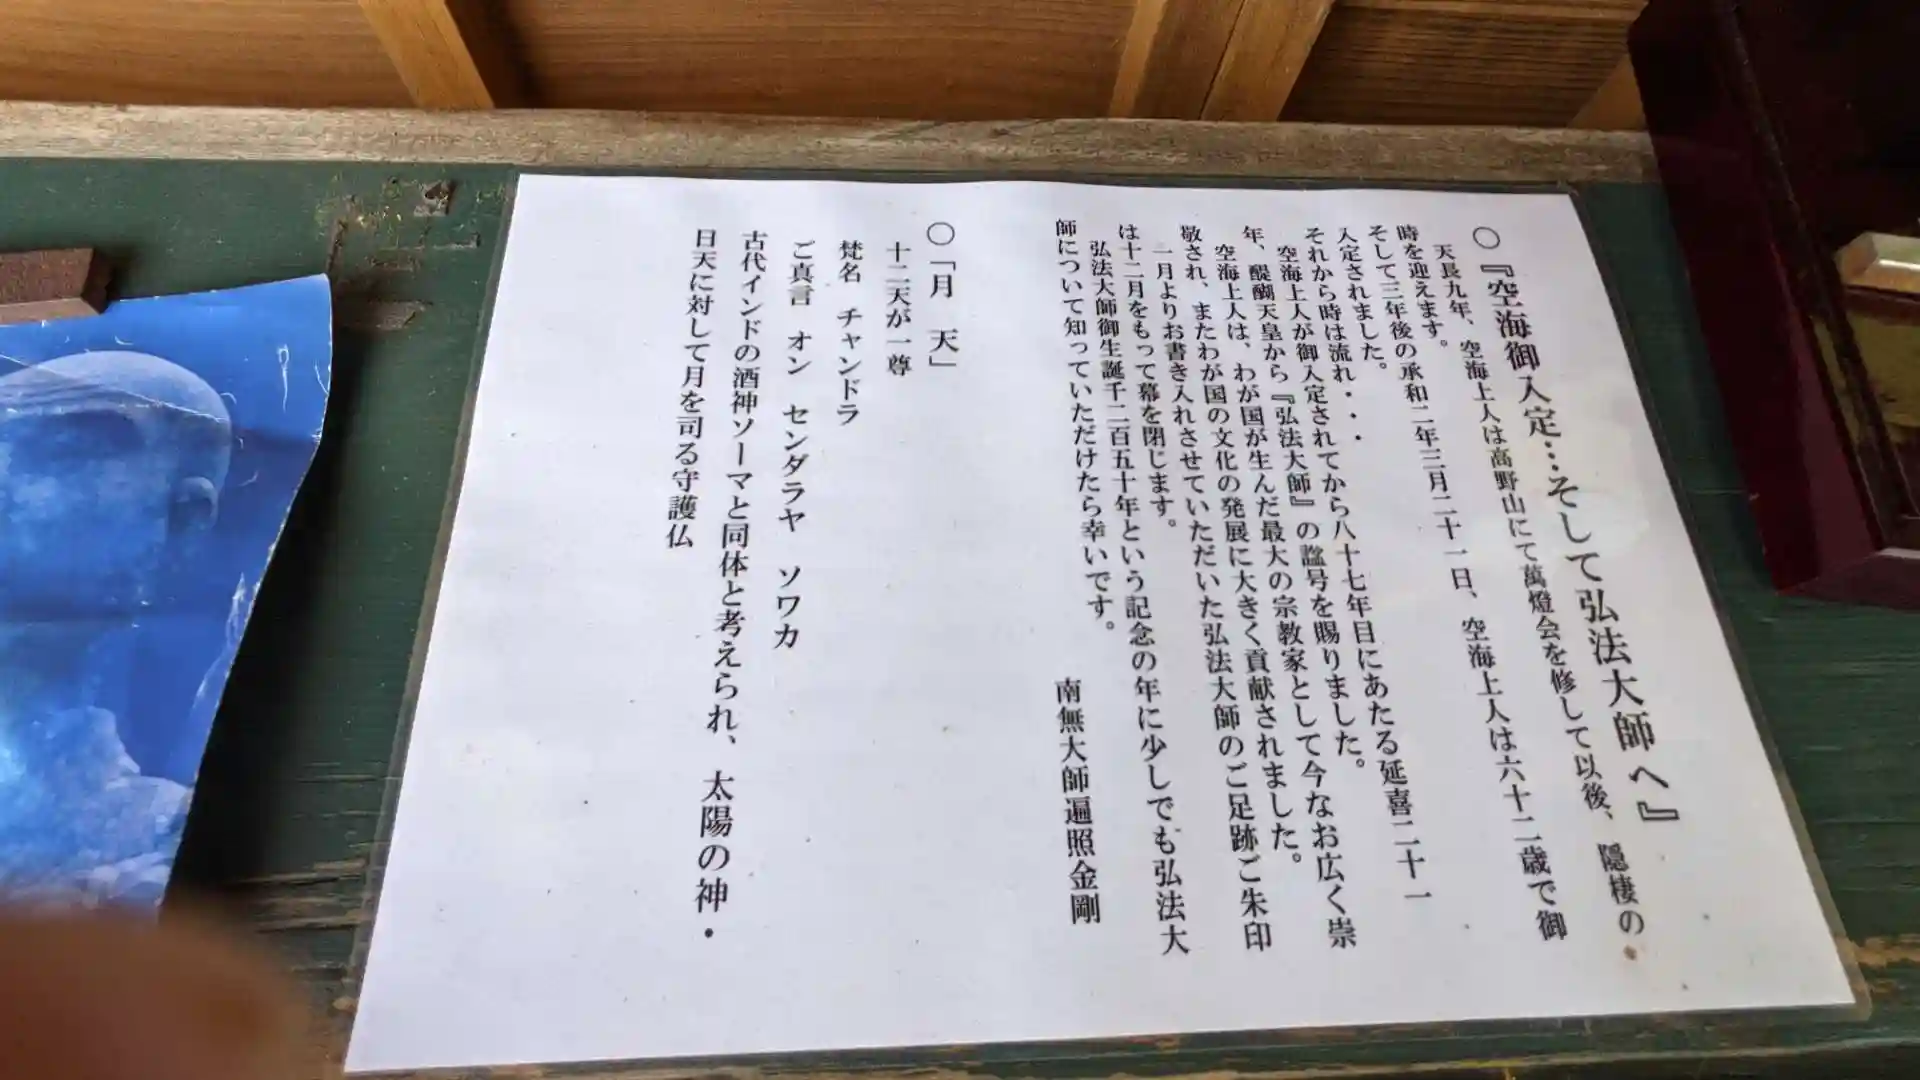 〇『空海御入定…そして弘法大師へ』
天長九年、空海上人は高野山にて萬燈会を修して以後、隠棲の
時を迎えます。
そして三年後の承和二年三月二十一日、空海上人は六十二歳で御
入定されました。
それから時は流れ・・・
空海上人が御入定されてから八十七年目にあたる延喜二十一
年、醍醐天皇から『弘法大師』の諡号を賜りました。
空海上人は、わが国が生んだ最大の宗教家として今なお広く崇
敬され、またわが国の文化の発展に大きく貢献されました。
一月よりお書き入れさせていただいた弘法大師のご足跡ご朱印
は十二月をもって幕を閉じます。
弘法大師御生誕千二百五十年という記念の年に少しでも弘法大
師について知っていただけたら幸いです。
南無大師遍照金剛
〇「月 天」
十二天が一尊
梵名 チャンドラ
ご真言 オン センダラヤ ソワカ
古代インドの酒神ソーマと同体と考えられ、太陽の神・
日天に対して月を司る守護仏